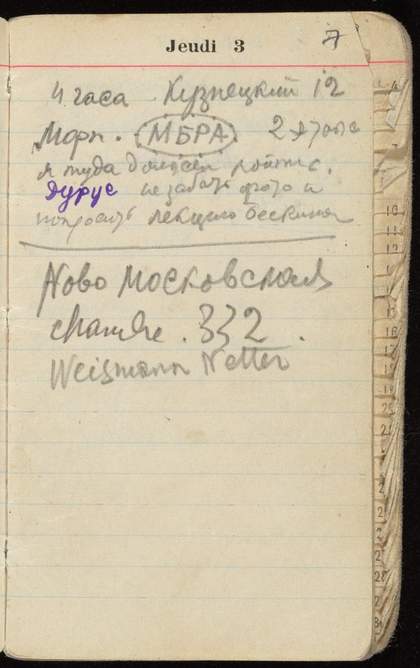 Jeudi 3
7
4 часа Кузнецкий 12
Морп. МБРА 2 этаж
я туда должен пойти.
Дурус не забыть фото и
попросить лекцию Бескина
Ново Московская
chambre. 332.
Weismann Netter